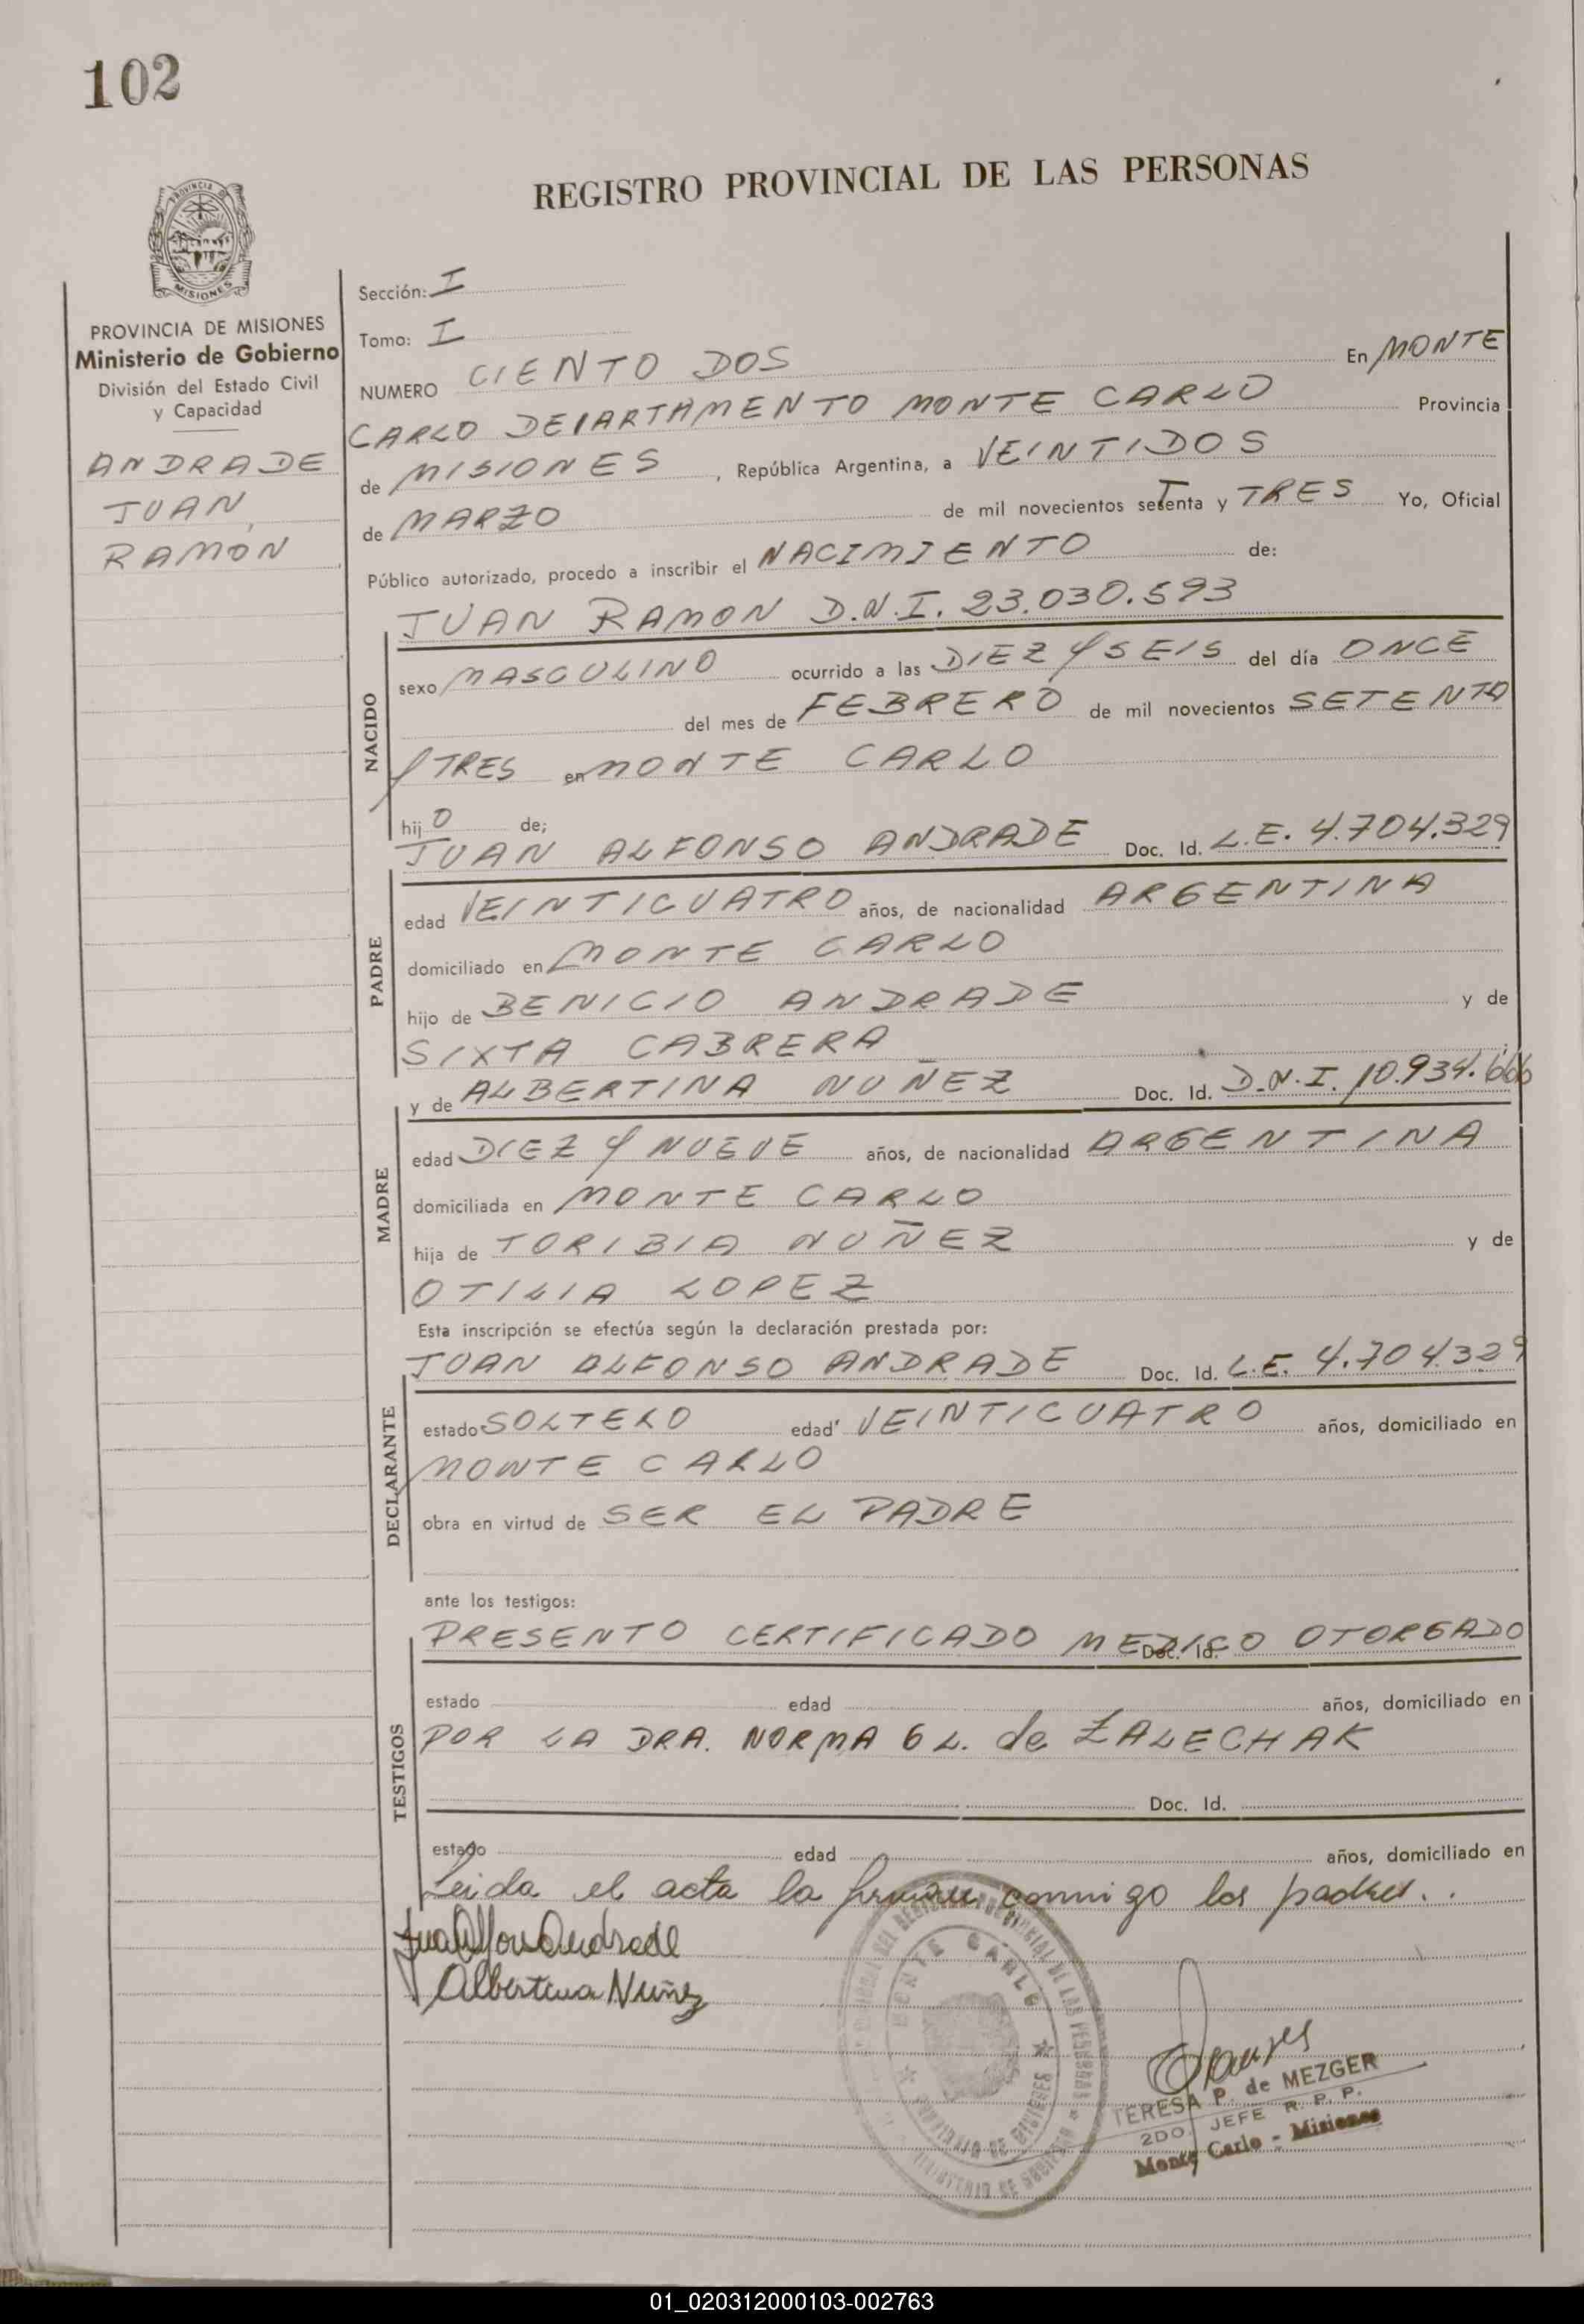 102
REGISTRO PROVINCIAL DE LAS PERSONAS
PROVINCIA DE MISIONES
PROVINCIA DE MISIONES
Ministerio de Gobierno
División del Estado Civil
y Capacidad
ANDRADE
JUAN
RAMÓN
Sección: I
Tomo: I
NUMERO CIENTO DOS En MONTE
CARLO DEPARTAMENTO MONTE CARLO Provincia
de MISIONES, República Argentina, a VEINTIDOS
de MARZO de mil novecientos setenta y TRES Yo, Oficial
Público autorizado, procedo a inscribir el NACIMIENTO de:
JUAN RAMON D.N.I. 23.030.593
NACIDO
sexo MASCULINO ocurrido a las DIEZ Y SEIS del día ONCE
del mes de FEBRERO de mil novecientos SETENTA
Y TRES en MONTE CARLO
hijO de;
JUAN ALFONSO ANDRADE Doc. Id. L.E. 4.704.329
PADRE
edad VEINTICUATRO años, de nacionalidad ARGENTINA
domiciliado en MONTE CARLO
hijo de BENICIO ANDRADE y de
SIXTA CABRERA
y de ALBERTINA NUÑEZ Doc. Id. D.N.I. 10.934.666
MADRE
edad DIEZ Y NUEVE años, de nacionalidad ARGENTINA
domiciliada en MONTE CARLO
hija de TORIBIA NUÑEZ y de
OTILIA LOPEZ
Esta inscripción se efectúa según la declaración prestada por:
JUAN ALFONSO ANDRADE Doc. Id. L.E. 4.704.329
DECLARANTE
estado SOLTERO edad VEINTICUATRO años, domiciliado en
MONTE CARLO
obra en virtud de SER EL PADRE
ante los testigos:
PRESENTO CERTIFICADO MEDICO OTORGADO
Doc. Id.
TESTIGOS
estado edad años, domiciliado en
POR LA DRA. NORMA G L. de ZALECHAK
Doc. Id.
estado edad años, domiciliado en
Leida el acta la firman conmigo los padres..
Juan Alfonso Andrade
Albertina Nuñez
MONTE CARLO
PROVINCIA DE MISIONES
TERESA P. de MEZGER
2DO. JEFE R. P. P.
Monte Carlo - Misiones
01_020312000103-002763